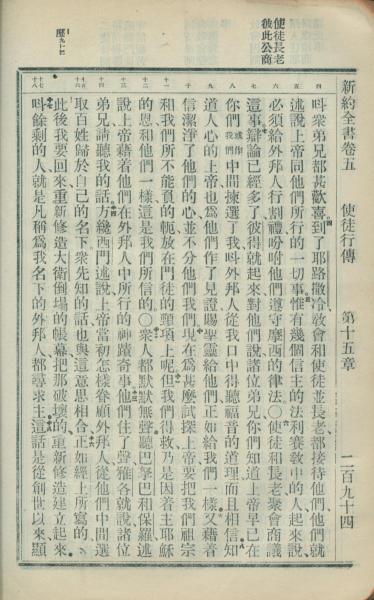 新約全書卷五　使徒行傳　第十五章　二百九十四
使徒長老
彼此公商
呌衆弟兄都甚歡喜到了耶路撒冷敎會和使徒並長老都接待他們他們就
述說上帝同他們所行的一切事惟有幾個信主的法利賽敎中的人起來說
必須給外邦人行割禮吩咐他們遵守摩西的律法〇使徒和長老聚會商議
這事辯論已經多了彼得就起來對他們說諸位弟兄你們知道上帝早已在
你們或作我們中間揀選了我呌外邦人從我口中得聽福音的道理而且相信知
道人心的上帝也爲他們作了見證賜聖靈給他們正如給我們一樣又藉着
信潔淨了他們的心並不分他們我們現在爲甚麼試探上帝要把我們祖宗
和我們所不能負的軛放在門徒的頸項上呢但我們得救乃是因着主耶穌
的恩和他們一樣這是我們所信的〇衆人都默默無聲聽巴拏巴和保羅述
說上帝藉着他們在外邦人中所行的神蹟奇事他們住了聲雅各就說諸位
弟兄請聽我的話方纔西門述說上帝當初怎樣眷顧外邦人從他們中間選
取百姓歸於自己的名下衆先知的話也與這意思相合正如經上所寫的
此後我要回來重新修造大衛倒塌的帳幕把那破壞的重新修造建立起來
呌餘剩的人就是凡稱爲我名下的外邦人都尋求主這話是從創世以來顯